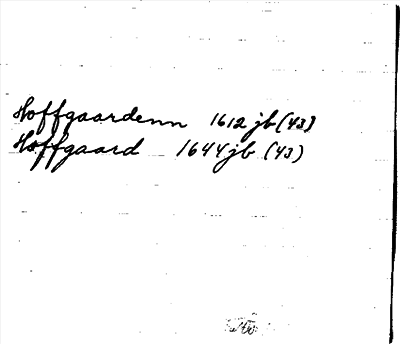 Hoffgaardenn 1612 jb (43)
Hoffgaard 1644 jb (43)